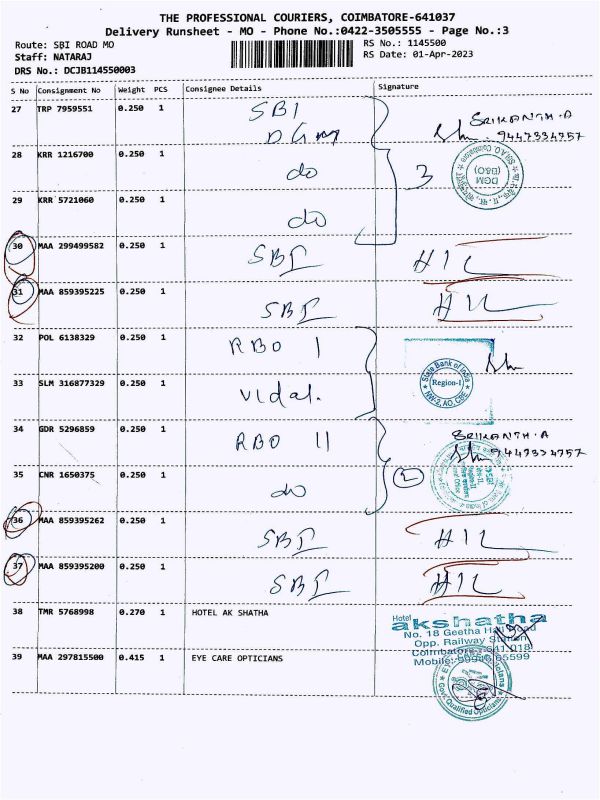 THE PROFESSIONAL COURIERS, COIMBATORE-641037
Delivery Runsheet - MO - Phone No.:0422-3505555 - Page No.:3
Route: SBI ROAD MO RS No.: 1145500
Staff: NATARAJ RS Date: 01-Apr-2023
DRS No.: DCJB114550003
S No Consignment No Weight PCS Consignee Details Signature
27 TRP 7959551 0.250 1 SBI
DGM
SRIKANTH.A
9447334757
28 KRR 1216700 0.250 1 do 3
DGM
(B&O)
29 KRR 5721060 0.250 1 do
30 MAA 299499582 0.250 1 SBI
31 MAA 859395225 0.250 1 SBI
32 POL 6138329 0.250 1 RBO I
State Bank of India
Region-I
NW-2, AO, CBE
33 SLM 316877329 0.250 1 Vidal.
34 GDR 5296859 0.250 1 RBO II SRIKANTH.A
9447334757
35 CNR 1650375 0.250 1 do 2
36 MAA 859395262 0.250 1 SBI
37 MAA 859395200 0.250 1 SBI
38 TMR 5768998 0.270 1 HOTEL AK SHATHA
Hotel
akshatha
No. 18 Geetha Hall Road
Opp. Railway Station
Coimbatore-641 018
Mobile:
39 MAA 297815500 0.415 1 EYE CARE OPTICIANS
Govt. Qualified Opticians